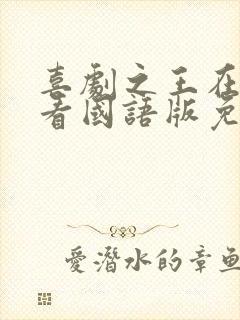 喜劇之王在
看國語版免
愛潛水的章魚